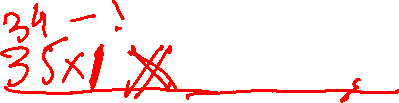 34 - !
35x1